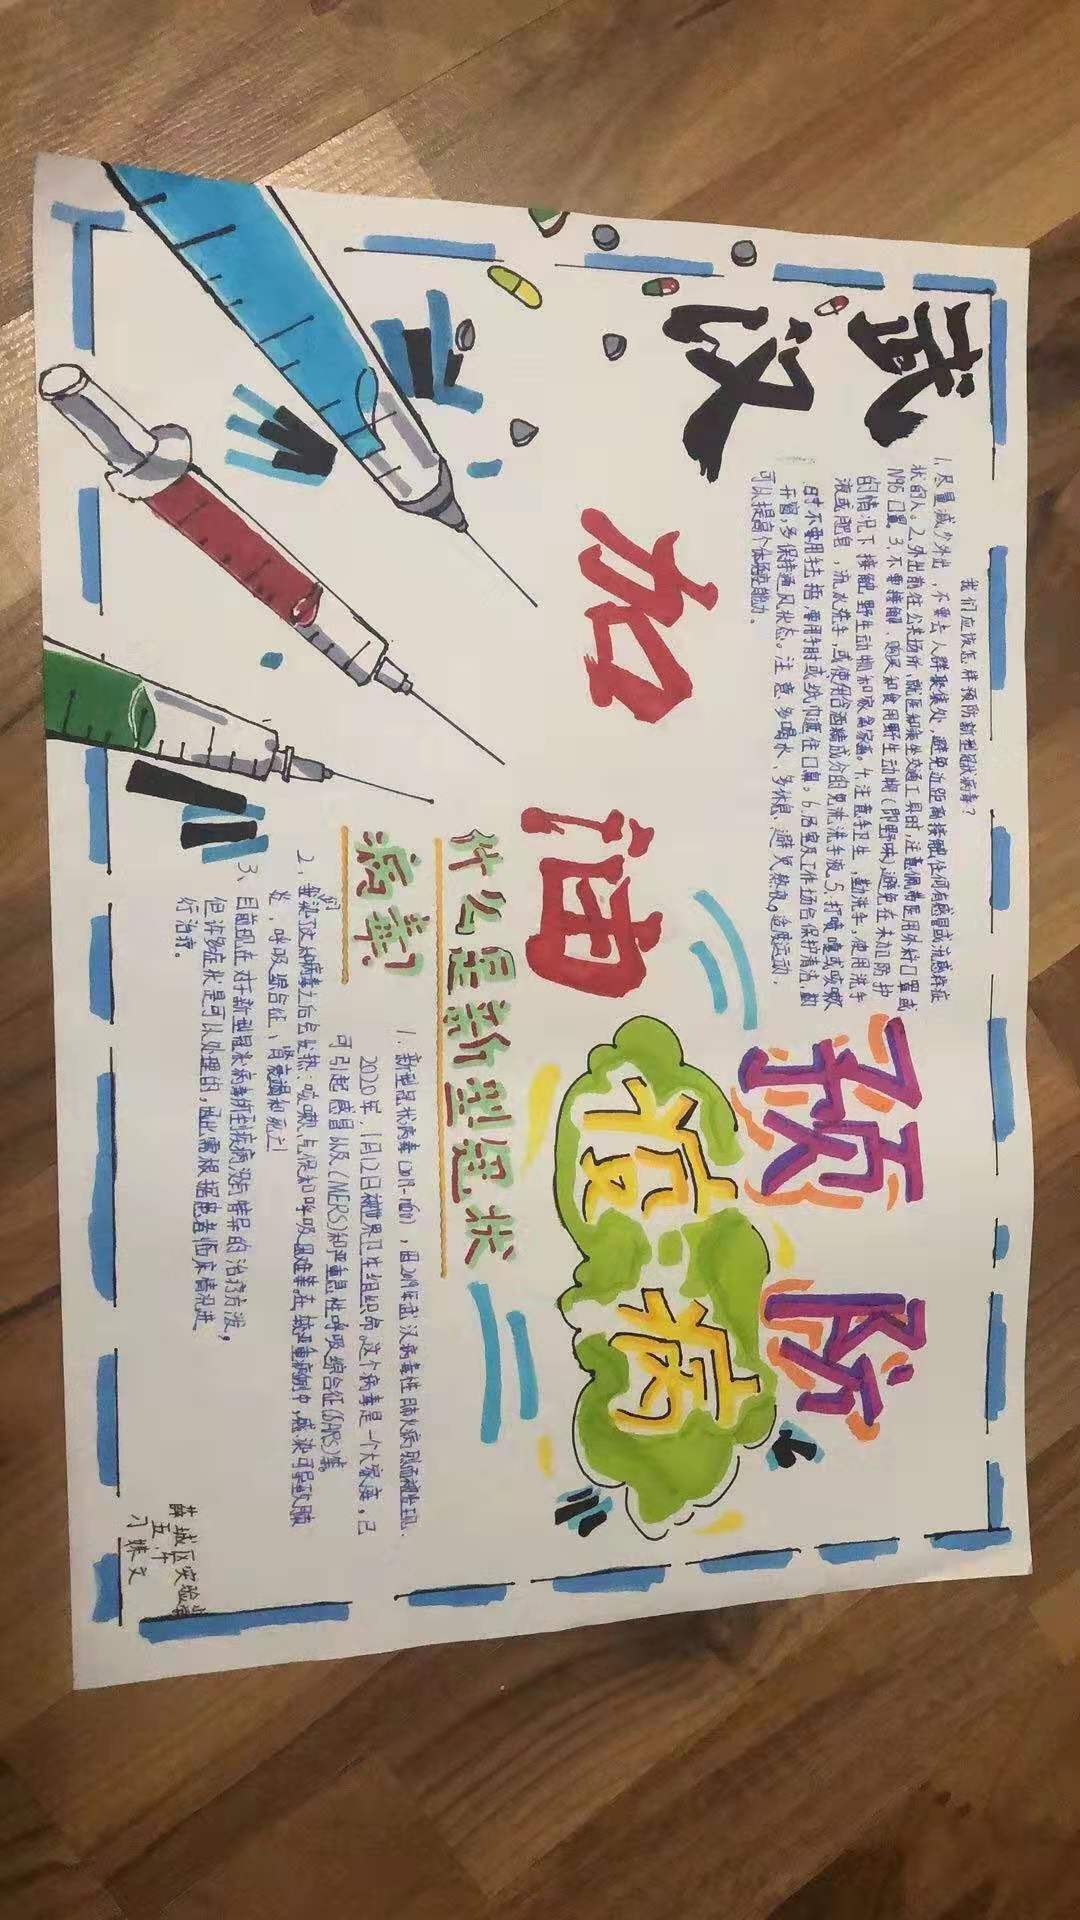 武汉
加油
预防
疫病
我们应该怎样预防新型冠状病毒?
1.尽量减少外出,不要去人群聚集处,避免近距离接触任何有感冒或流感样症
状的人。2.外出前往公共场所,就医和乘坐交通工具时,注意佩带医用外科口罩或
N95口罩。3.不要接触、购买和食用野生动物(即野味)避免在未加防护
的情况下接触野生动物和家禽家畜。4.注意手卫生,勤洗手,使用洗手
液或肥皂,流水洗手,或使用含酒精成分的免洗洗手液。5.打喷嚏或咳嗽
时不要用手捂,要用手肘或纸巾遮住口鼻。6.居室及工作场合保护清洁,勤
开窗,多保持通风状态。注意多喝水、多休息、避免熬夜。适度运动,
可以提高个体免疫能力。
什么是新型冠状
病毒
1.新型冠状病毒(2019-nCoV),因2019年武汉病毒性肺炎病例而被发现,
2020年,1月12日被世界卫生组织命。这个病毒是一个大家庭,已
可引起感冒以及(MERS)和严重急性呼吸综合征(SARS)等。
2、们染了这种病毒之后会发热:咳嗽、气促和呼吸困难等。在较严重病例中,感染可导致肺
炎、呼吸综合征、肾衰竭和死亡!
3、目前现在对于新型冠状病毒所致疾病没有特异的治疗方法,
但许多症状是可以处理的,因此需根据患者临床情况进
行治疗。
薛城区实验小
五.
文